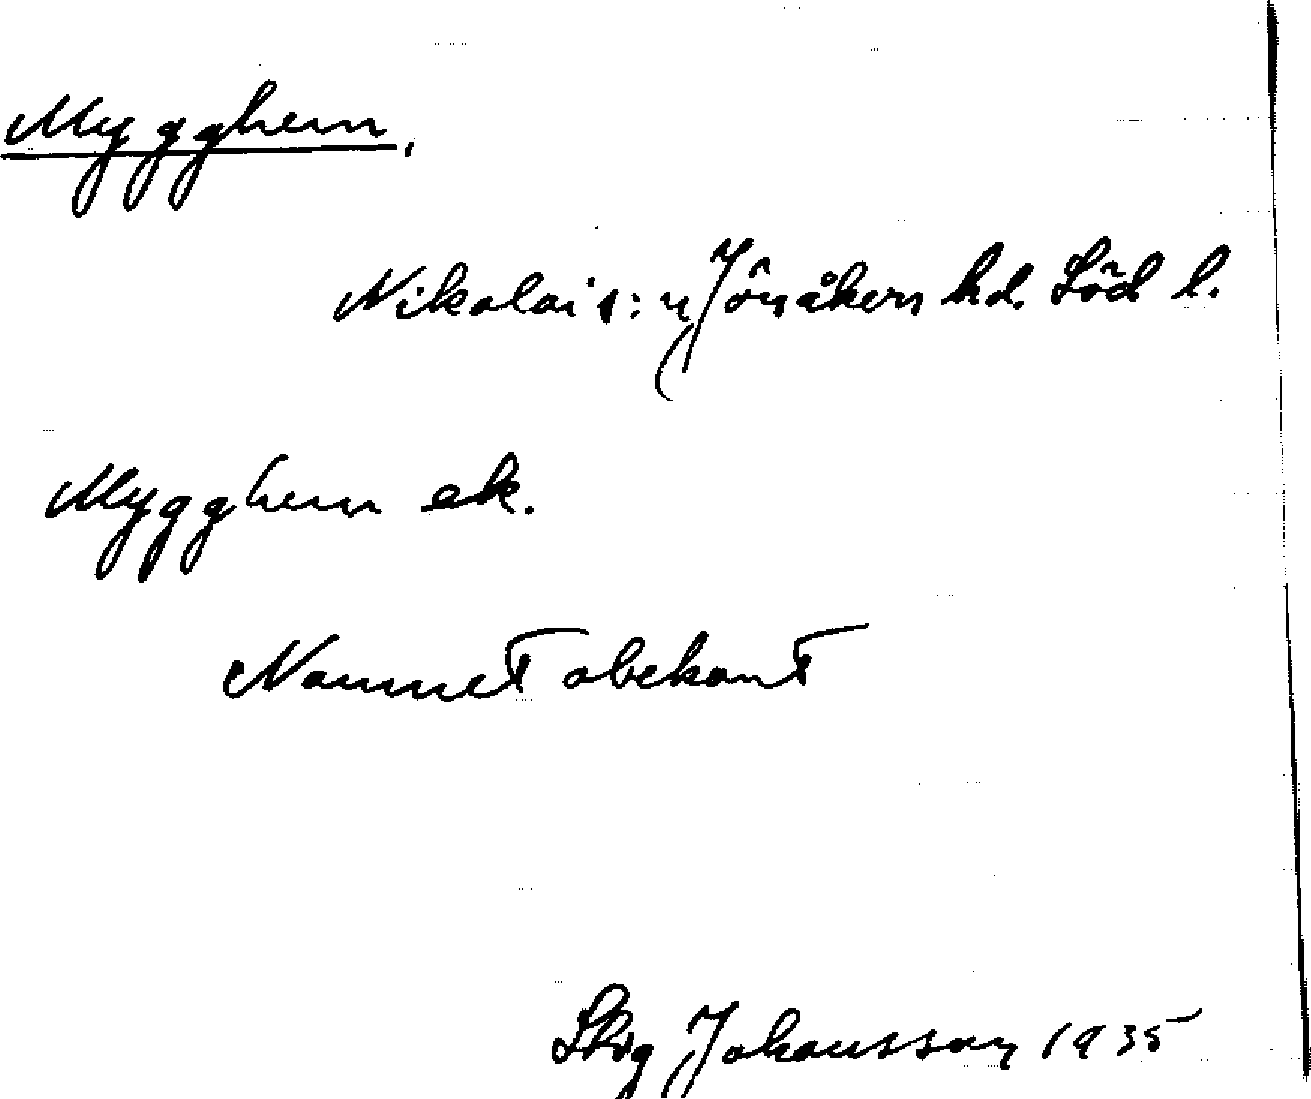 Mygghem.
Nikolai s:n Jönåkers hd. Söd l.
Mygghem ek.
Namnet obekant
Skog Johansson 1935